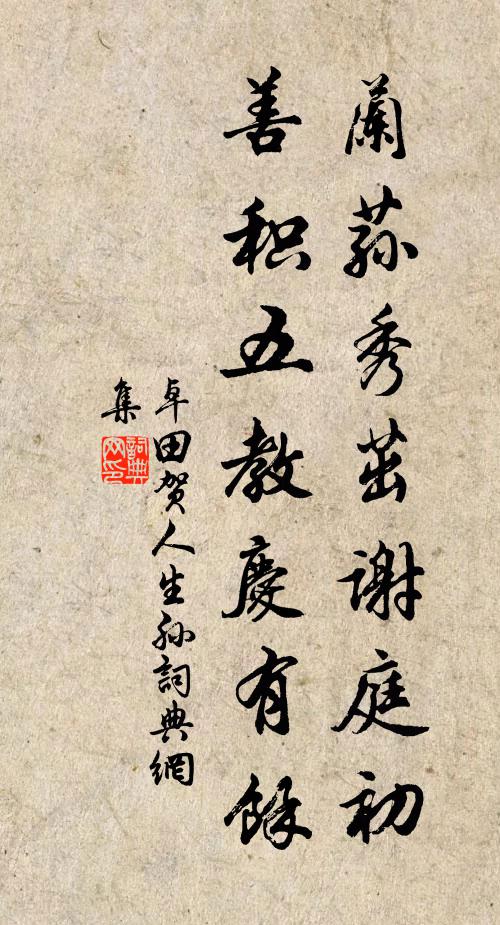 蘭蓀秀茁謝庭初
善积五教慶有餘
卓田賀人生孫詞典網
集
詞典
网印